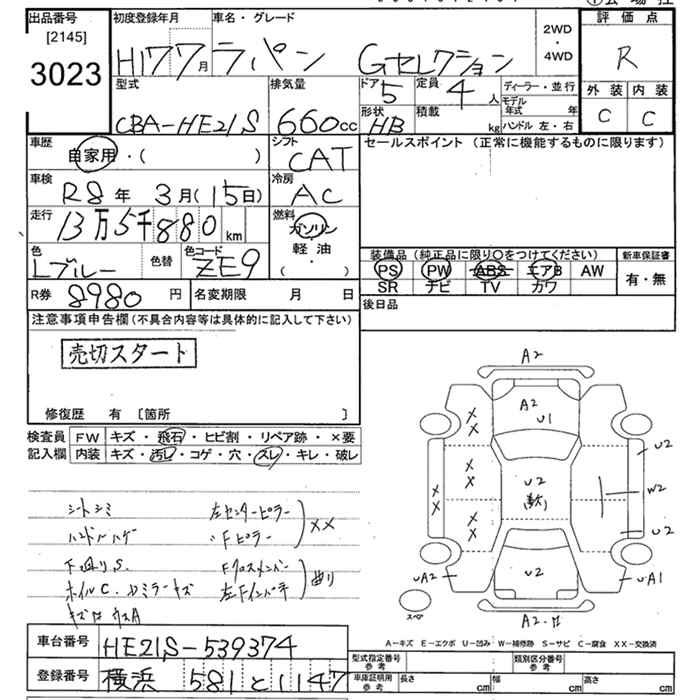 出品番号
[2145]
3023
初度登録年月
H17 7月
車名・グレード
ラパン Gセレクション
2WD
・
4WD
評価点
R
外装 内装
C C
型式
CBA-HE21S
排気量
660cc
ドア
5
定員
4人
形状
HB
積載
kg
ディーラー・並行
モデル年式 年
ハンドル 左・右
車歴
自家用・( )
シフト
CAT
セールスポイント (正常に機能するものに限ります)
車検
R8年 3月(15日)
冷房
AC
走行
13万5千880km
燃料
ガソリン
・
軽油
・
( )
色
Lブルー
色替
色コード
ZE9
装備品 (純正品に限り○をつけてください)
新車保証書
PS PW ABS エアB AW
SR ナビ TV カワ
有・無
R券
8980円
名変期限 月 日
後日品
注意事項申告欄 (不具合内容等は具体的に記入して下さい)
売切スタート
修復歴 有 [箇所 ]
検査員
記入欄
FW キズ・飛石・ヒビ割・リペア跡・×要
内装 キズ・汚レ・コゲ・穴・スレ・キレ・破レ
シートシミ
ハンドルハゲ
下廻りS.
ホイルC.ミラーキズ
左センターピラー
〃Fピラー
XX
Fクロスメンバー
左Fインパネ
曲り
A2
A2
U1
U2
U2
W2
U2
U2
UA2
UA1
スペア
A2
A-キズ E-エクボ U-凹み W-補修跡 S-サビ C-腐食 XX-交換済
車台番号
HE21S-539374
登録番号
横浜 581 と 1147
型式指定番号
参考
類別区分番号
参考
車庫証明用
参考
長さ cm
幅 cm
高さ cm